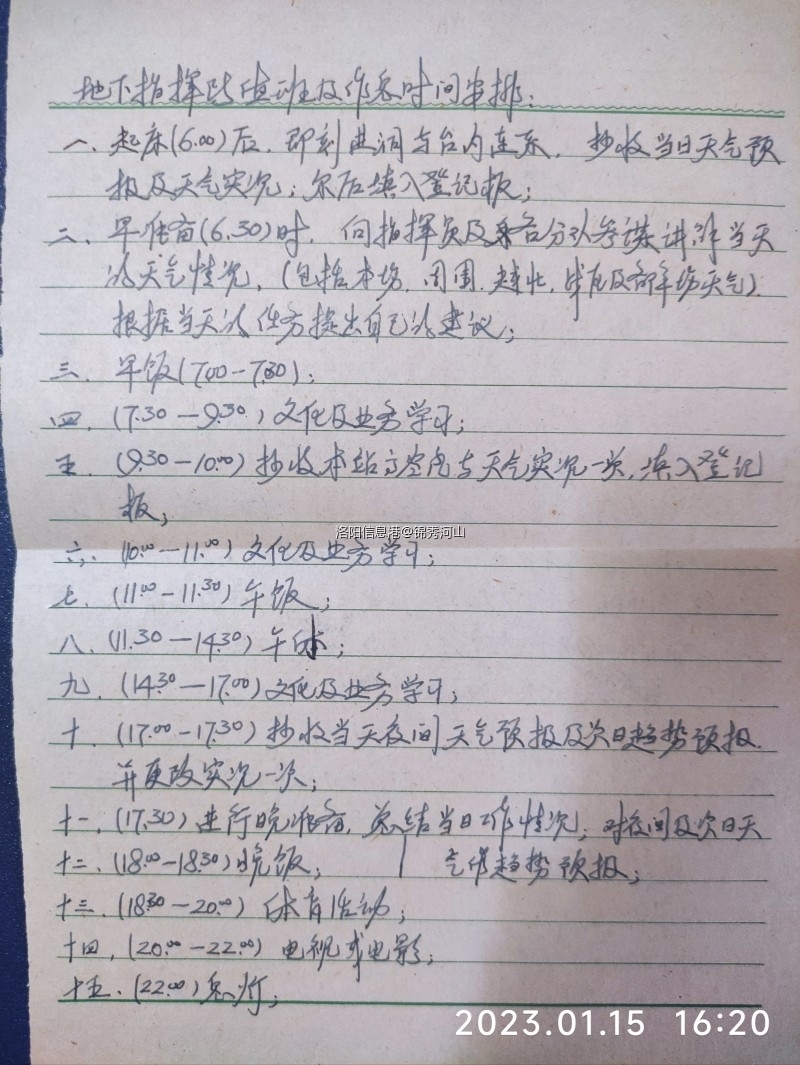 地下指挥所值班及作息时间安排:
一、起床(6.00)后,即刻出洞与台内连系,抄收当日天气预
报及天气实况;尔后填入登记板;
二、早准备(6.30)时,向指挥员及各分队参谋讲解当天
的天气情况,(包括本场、周围、战区及友邻场天气)
根据当天的任务提出自己的建议;
三、早饭(7.00-7.30);
四、(7.30-9.30)文化及业务学习;
五、(9.30-10.00)抄收本站高空风与天气实况一次,填入登记
板;
六、(10.00-11.00)文化及业务学习;
七、(11.00-11.30)午饭;
八、(11.30-14.30)午休;
九、(14.30-17.00)文化及业务学习;
十、(17.00-17.30)抄收当天夜间天气预报及次日趋势预报,
并更改实况一次;
十一、(17.30)进行晚准备,总结当日工作情况;对夜间及次日天
十二、(18.00-18.30)晚饭;
气作趋势预报;
十三、(18.30-20.00)体育活动;
十四、(20.00-22.00)电视或电影;
十五、(22.00)息灯;
洛阳信息港@锦秀河山
2023.01.15 16:20